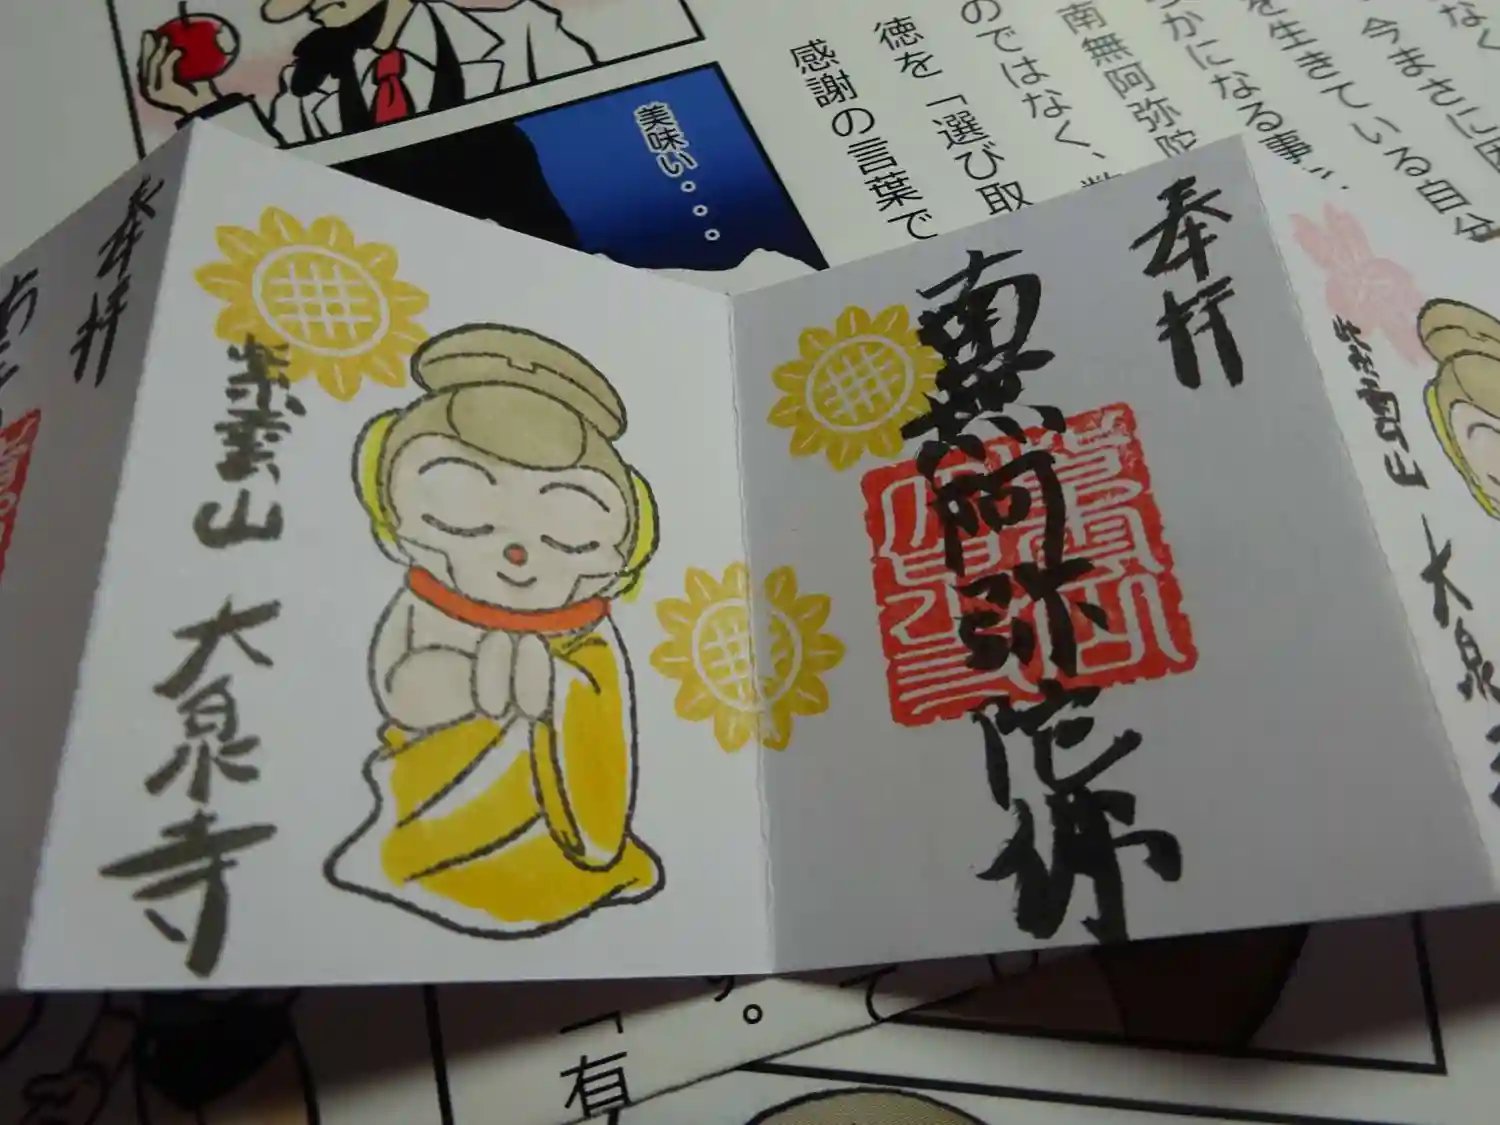 奉拝
南無阿弥陀佛
紫雲山 大泉寺
奉拝
紫雲山 大泉
美味い。。。
なく
今まさに
を生きている自分
かになる事
南無阿弥陀
のではなく、
徳を「選び取
感謝の言葉で
す。
「有